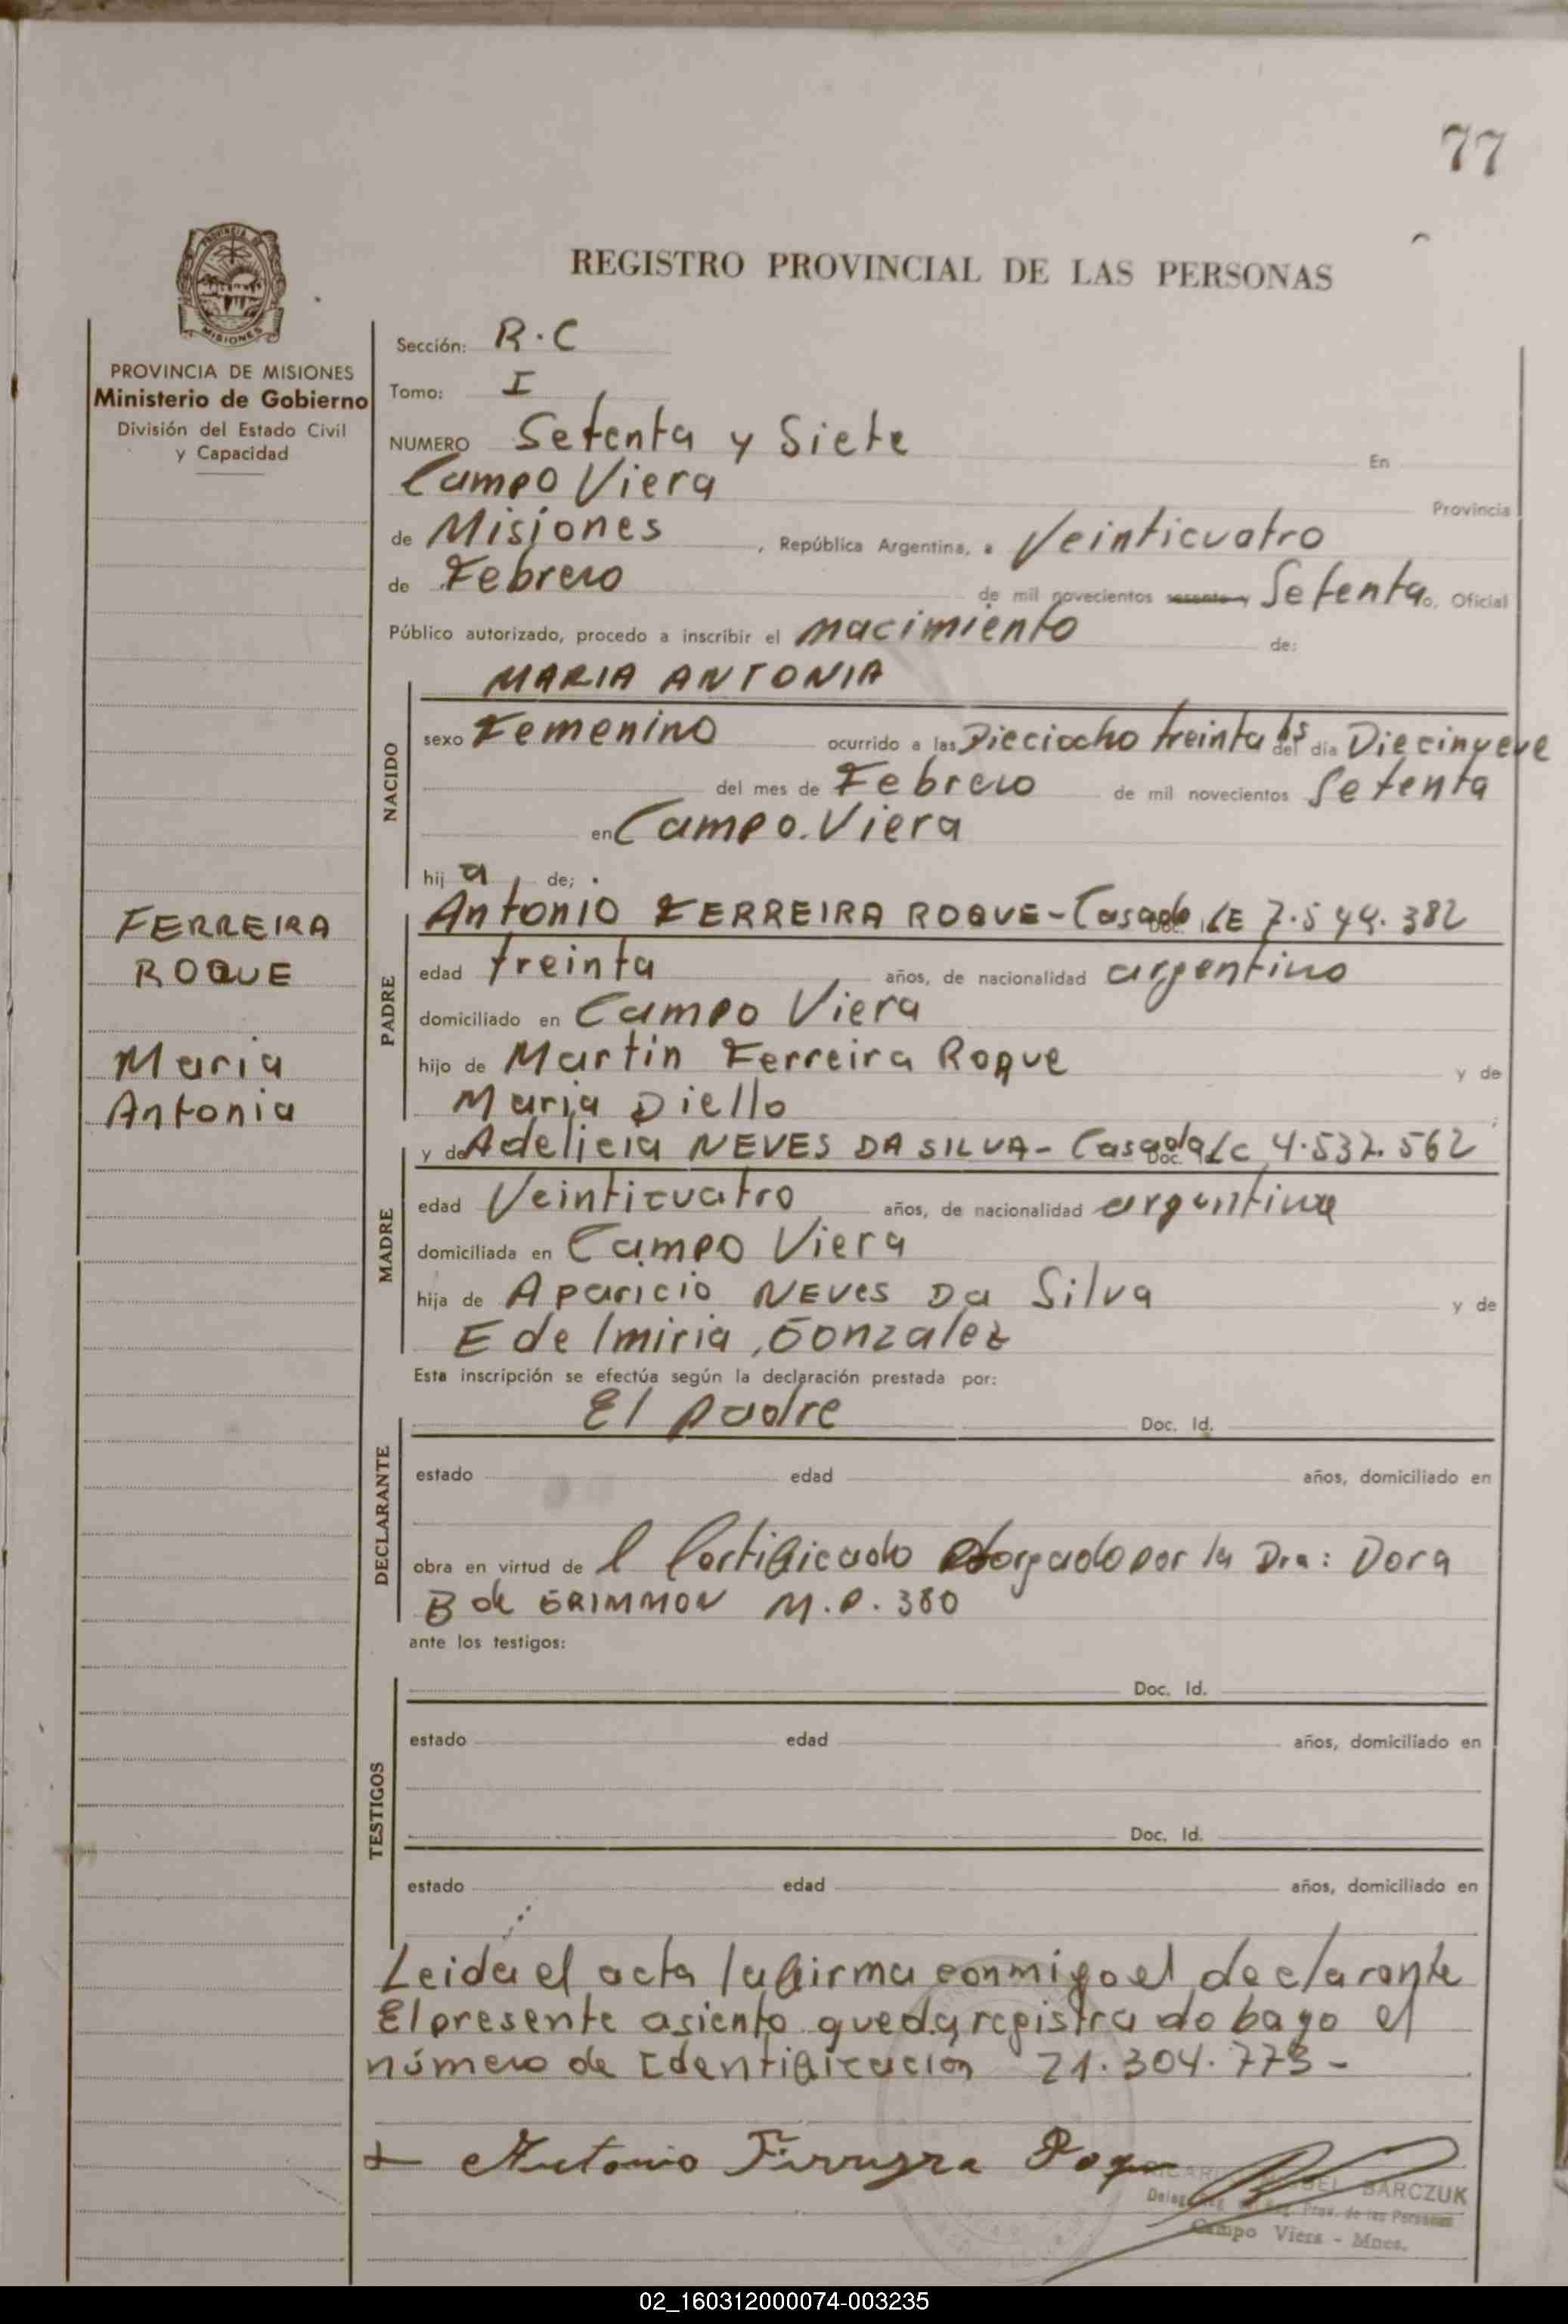 77
REGISTRO PROVINCIAL DE LAS PERSONAS
PROVINCIA DE MISIONES
Ministerio de Gobierno
División del Estado Civil
y Capacidad
FERREIRA
ROQUE
Maria
Antonia
Sección: R.C
Tomo: I
NUMERO Setenta y Siete En
Campo Viera Provincia
de Misiones, República Argentina, a Veinticuatro
de Febrero de mil novecientos sesenta y Setenta o, Oficial
Público autorizado, procedo a inscribir el nacimiento de:
MARIA ANTONIA
NACIDO
sexo Femenino ocurrido a las Dieciocho treinta hs del día Diecinueve
del mes de Febrero de mil novecientos Setenta
en Campo Viera
hij a de;
PADRE
Antonio FERREIRA ROQUE - Casado Doc. LE 7.544.382
edad treinta años, de nacionalidad argentino
domiciliado en Campo Viera
hijo de Martin Ferreira Roque y de
Maria Diello
MADRE
y de Adelicia NEVES DA SILVA - Casada Doc. LC 4.532.562
edad Veinticuatro años, de nacionalidad argentina
domiciliada en Campo Viera
hija de Aparicio NEVES Da Silva y de
Edelmiria Gonzalez
Esta inscripción se efectúa según la declaración prestada por:
DECLARANTE
El padre Doc. Id.
estado edad años, domiciliado en
obra en virtud de l Certificado otorgado por la Dra: Dora
B de GRIMMON M.P. 380
ante los testigos:
TESTIGOS
Doc. Id.
estado edad años, domiciliado en
Doc. Id.
estado edad años, domiciliado en
Leida el acta la firma conmigo el declarante
El presente asiento queda registrado bayo el
número de Identificación 21.304.773-
+ Antonio Ferreyra Roque
BARCZUK
Prov. de las Personas
Campo Viera - Mnes.
02_160312000074-003235